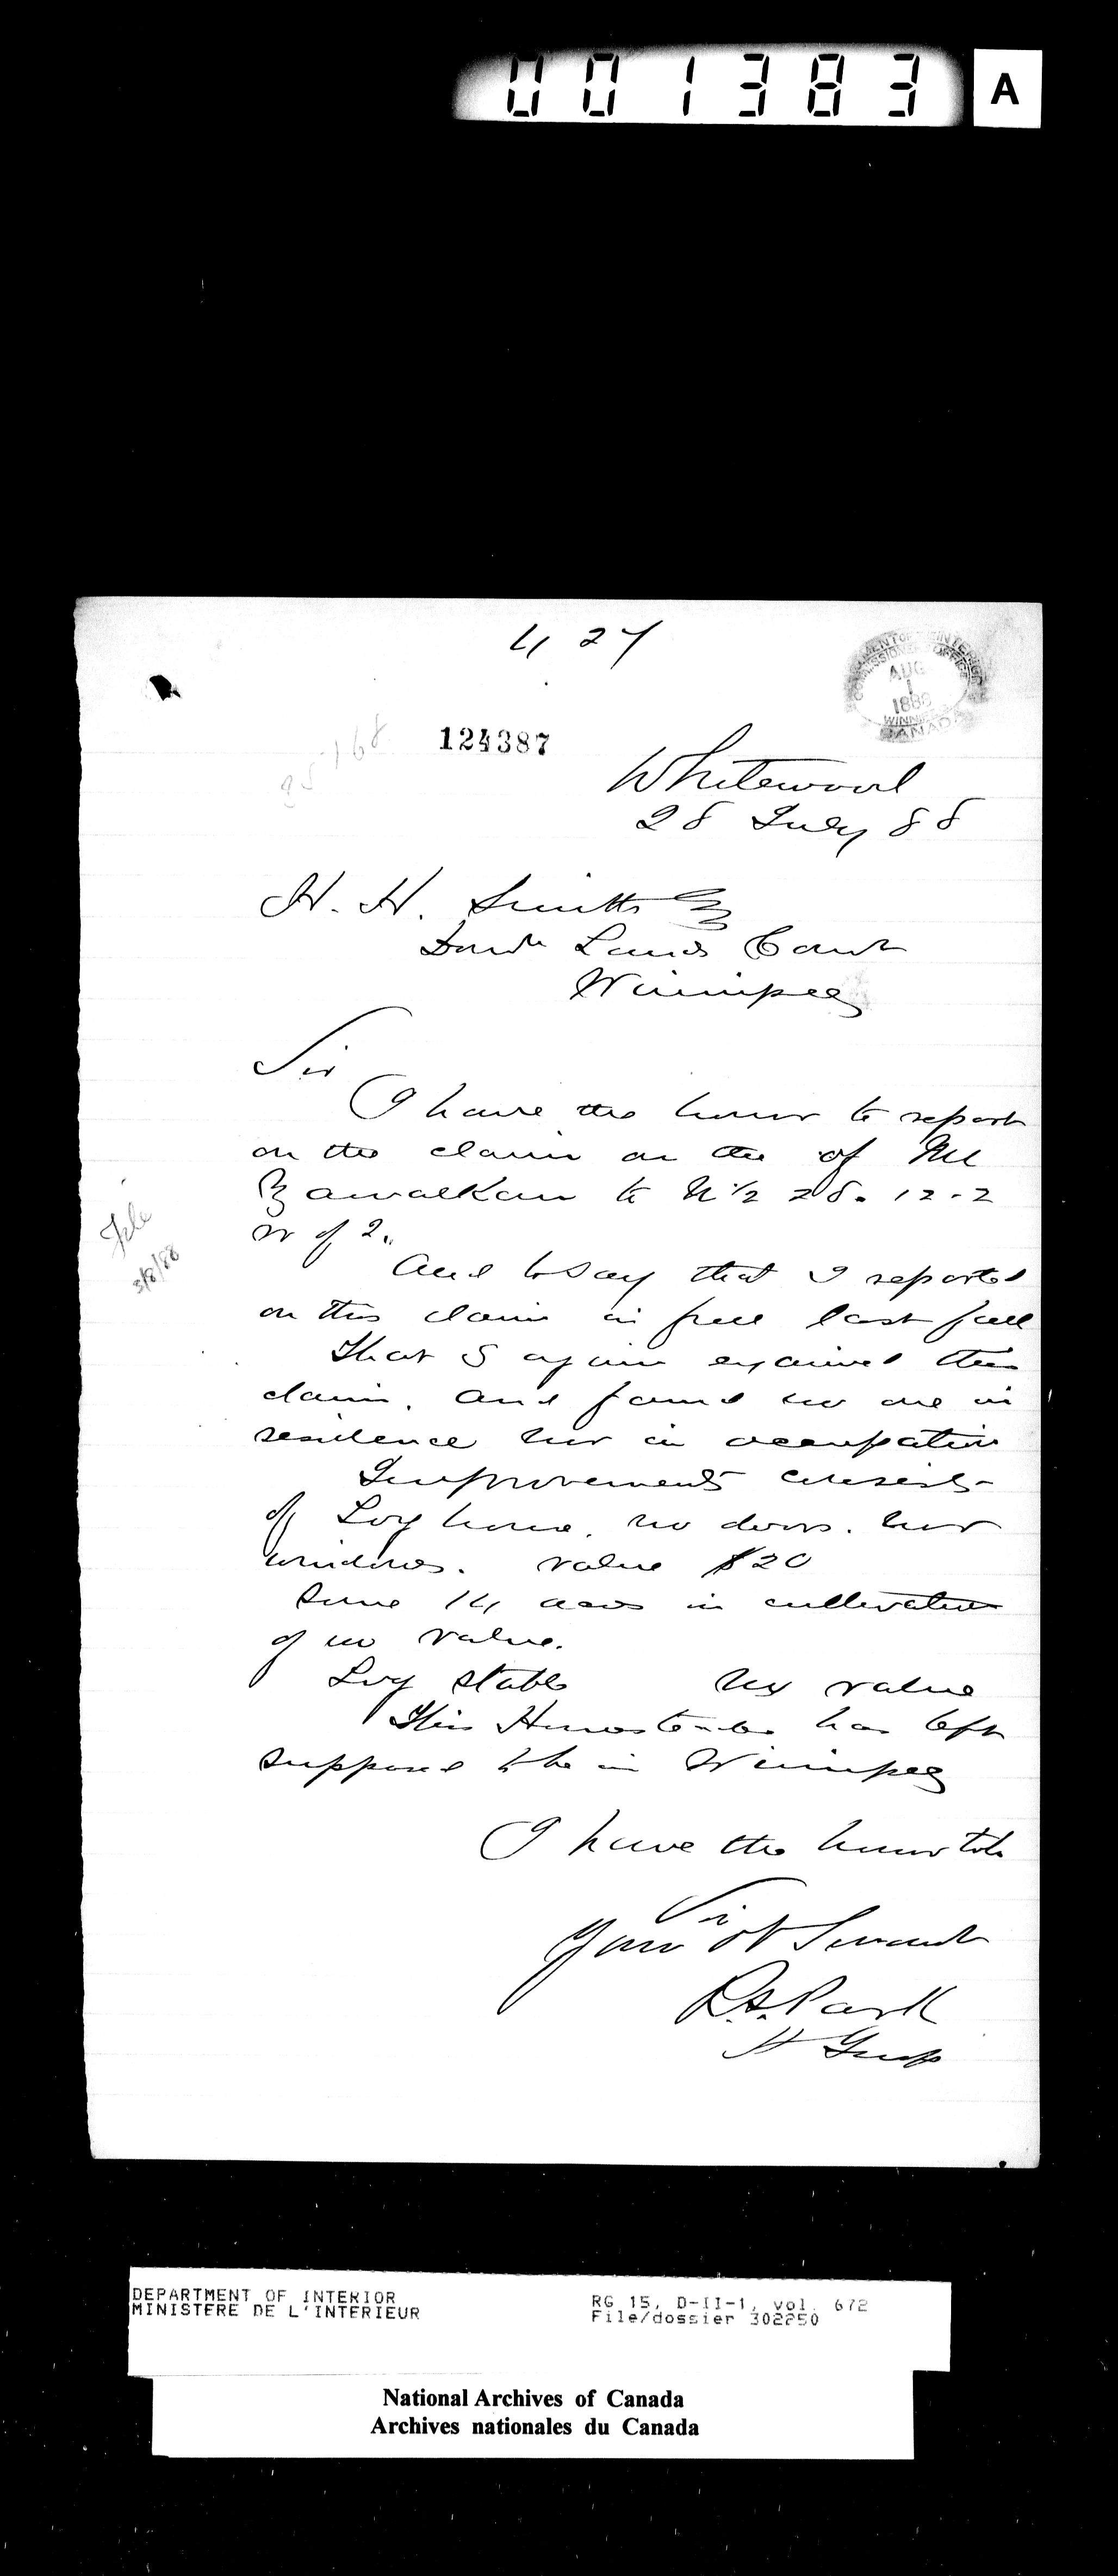 001383 A
427
DEPARTMENT OF INTERIOR
COMMISSIONER'S OFFICE
AUG
1
1888
WINNIPEG
CANADA
124387
Whitewood
28 July 88
H. H. Smith Esq
Domn Lands Comr
Winnipeg
Sir
I have the honor to report
on the claim on the of
to N 1/2 28. 12-2
W of 2.
File
3/8/88
And to say that I reported
on this claim in full last fall
That I again examined this
claim. and found no one in
residence nor in occupation
Improvements consist
of Log house. no doors. nor
windows. value $20
Some 14 acres in cultivation
of no value.
Log stable No value
This Homesteader has left
supposed to be in Winnipeg
I have the honor to be
Sir
Your obt Servant
R.S. Park
H Insp
DEPARTMENT OF INTERIOR
MINISTERE DE L'INTERIEUR
RG 15, D-II-1, vol. 672
File/dossier 302250
National Archives of Canada
Archives nationales du Canada